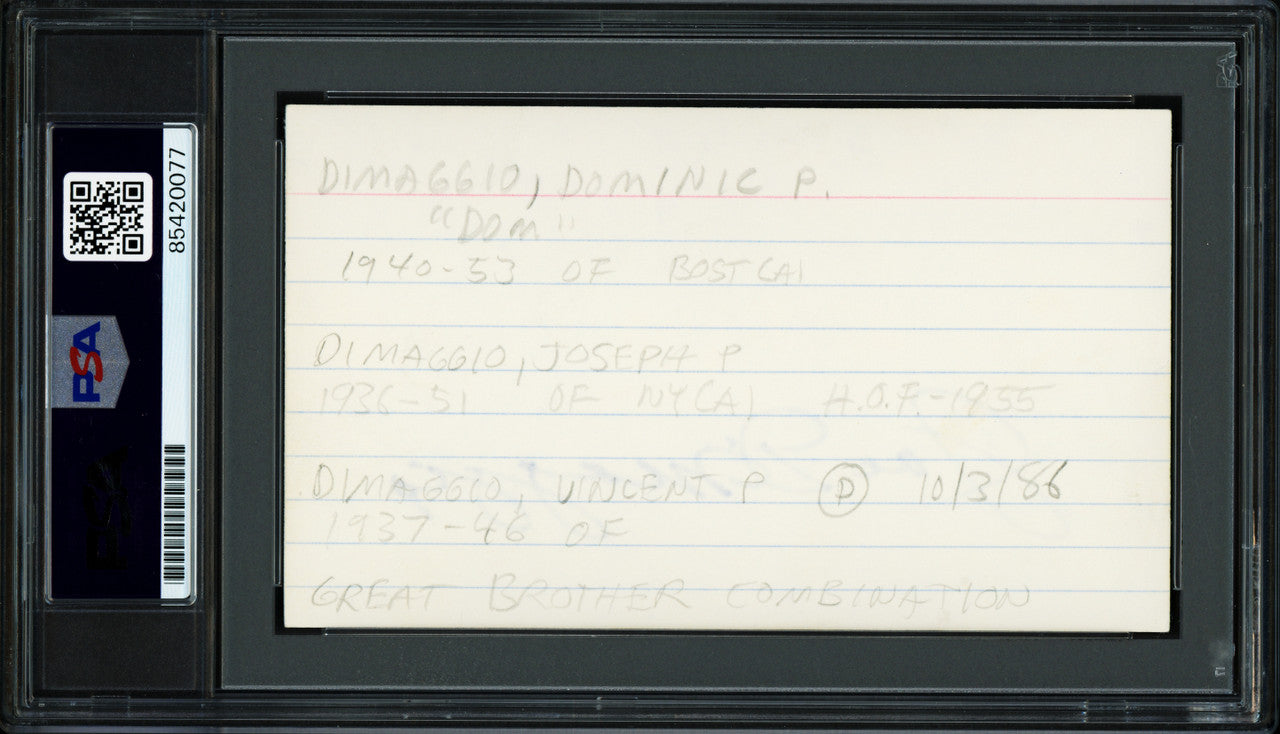 DIMAGGIO, DOMINIC P.
"DOM"
1940-53 OF BOST(A)
DIMAGGIO, JOSEPH P
1936-51 OF NY(A) H.O.F.-1955
DIMAGGIO, VINCENT P D 10/3/86
1937-46 OF
GREAT BROTHER COMBINATION
85420077
PSA